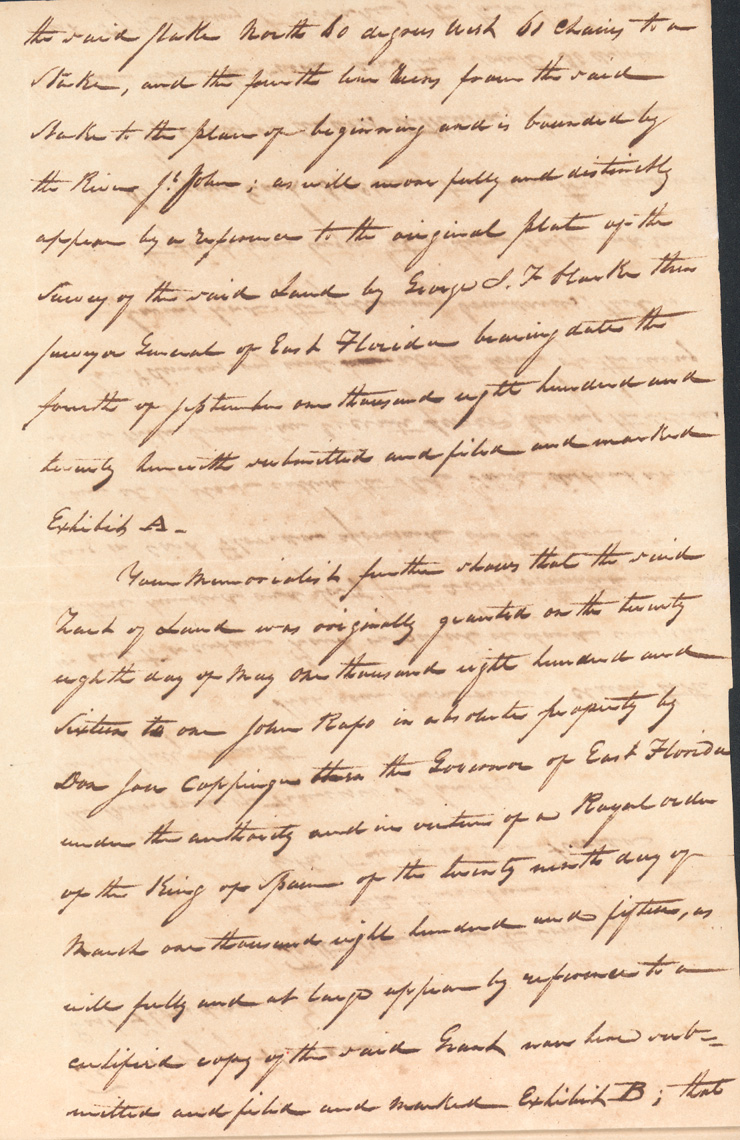 the said stake North 60 degrees West 61 chains to a
Stake, and the fourth line runs from the said
stake to the place of beginning and is bounded by
the River St. John; as will more fully and distinctly
appear by a reference to the original plat of the
survey of the said Land by George J. F. Clarke then
surveyor General of East Florida bearing date the
fourth of September one thousand eight hundred and
twenty herewith submitted and filed and marked
Exhibit A.
Your Memorialist further shows that the said
tract of Land was originally granted on the twenty
eighth day of May one thousand eight hundred and
sixteen to one John Rapo in absolute property by
Don Jose Coppinger then the Governor of East Florida
under the authority and in virtue of a Royal order
of the King of Spain of the twenty ninth day of
March one thousand eight hundred and fifteen, as
will fully and at large appear by reference to a
certified copy of the said Grant now here sub=
mitted and filed and marked Exhibit B; that